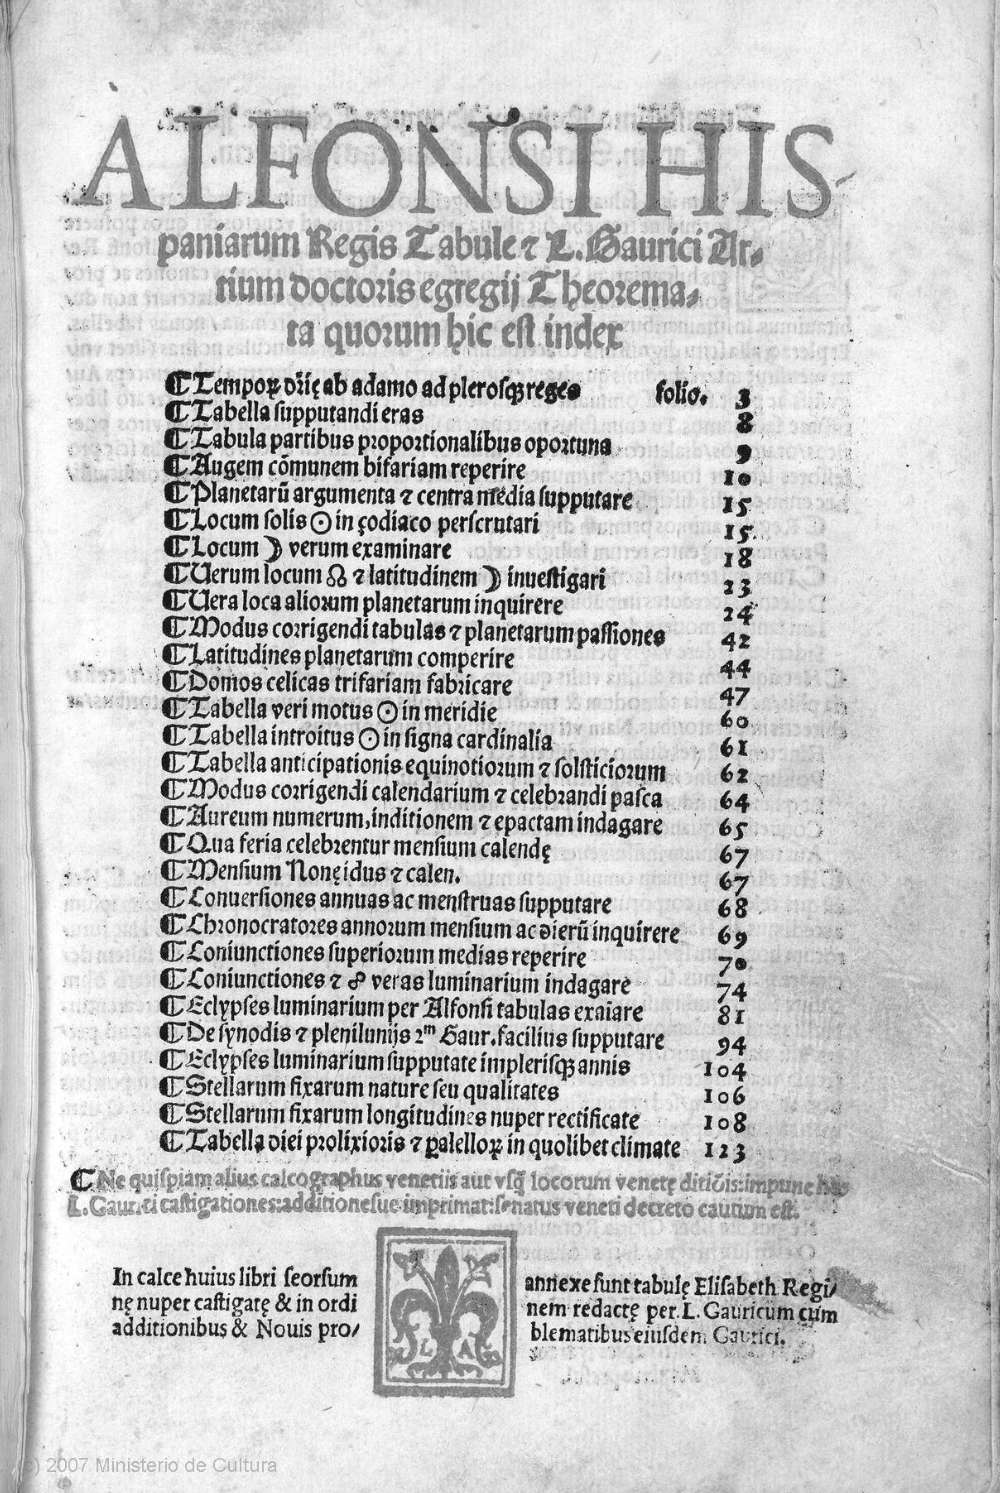 ALFONSI HIS
paniarum Regis Tabule ⁊ L. Gaurici Ar-
tium doctoris egregij Theorema-
ta quorum hic est index
¶ Tempoꝝ dr̄ię ab adamo ad plerosqꝫ reges folio. 3
¶ Tabella supputandi eras 8
¶ Tabula partibus proportionalibus oportuna 9
¶ Augem cōmunem bifariam reperire 10
¶ Planetarū argumenta ⁊ centra media supputare 15
¶ Locum solis ☉ in çodiaco perscrutari 15
¶ Locum ☽ verum examinare 18
¶ Uerum locum ☊ ⁊ latitudinem ☽ inuestigari 23
¶ Uera loca aliorum planetarum inquirere 24
¶ Modus corrigendi tabulas ⁊ planetarum passiones 42
¶ Latitudines planetarum comperire 44
¶ Domos celicas trifariam fabricare 47
¶ Tabella veri motus ☉ in meridie 60
¶ Tabella introitus ☉ in signa cardinalia 61
¶ Tabella anticipationis equinotiorum ⁊ solsticiorum 62
¶ Modus corrigendi calendarium ⁊ celebrandi pasca 64
¶ Aureum numerum, inditionem ⁊ epactam indagare 65
¶ Qua feria celebrentur mensium calendę 67
¶ Mensium Nonę idus ⁊ calen. 67
¶ Conuersiones annuas ac menstruas supputare 68
¶ Chronocratores annorum mensium ac dierū inquirere 69
¶ Coniunctiones superiorum medias reperire 70
¶ Coniunctiones ⁊ ☍ veras luminarium indagare 74
¶ Eclypses luminarium per Alfonsi tabulas exaīare 81
¶ De synodis ⁊ plenilunijs 2m Gaur. facilius supputare 94
¶ Eclypses luminarium supputate in plerisqꝫ annis 104
¶ Stellarum fixarum nature seu qualitates 106
¶ Stellarum fixarum longitudines nuper rectificate 108
¶ Tabella diei prolixioris ⁊ ꝑalelloꝝ in quolibet climate 123
¶ Ne quispiam alius calcographus venetiis aut vsqꝫ locorum venetę ditiōis: impune has
L. Gaurici castigationes: additionesue imprimat: senatus veneti decreto cautum est.
In calce huius libri seorsum annexe sunt tabulę Elisabeth Regi/
nę nuper castigatę & in ordi nem redactę per. L. Gauricum cum
additionibus & Nouis pro/ blematibus eiusdem Gaurici.
L A
(c) 2007 Ministerio de Cultura